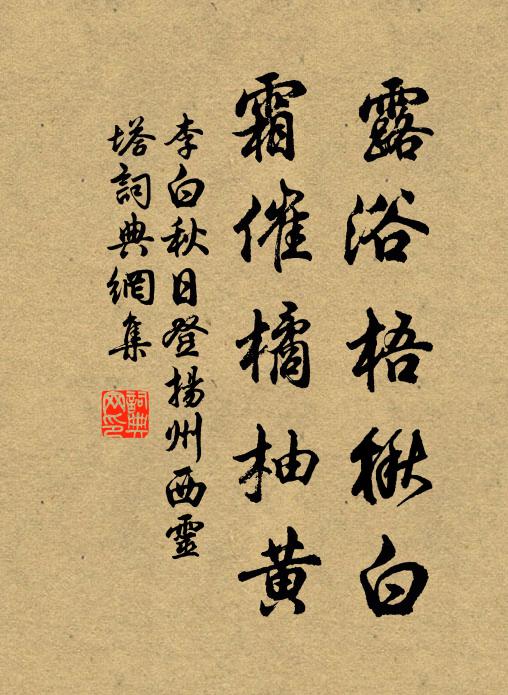 露浴梧楸白
霜催橘柚黄
李白秋日登揚州西靈
塔詞典網集
詞典网印